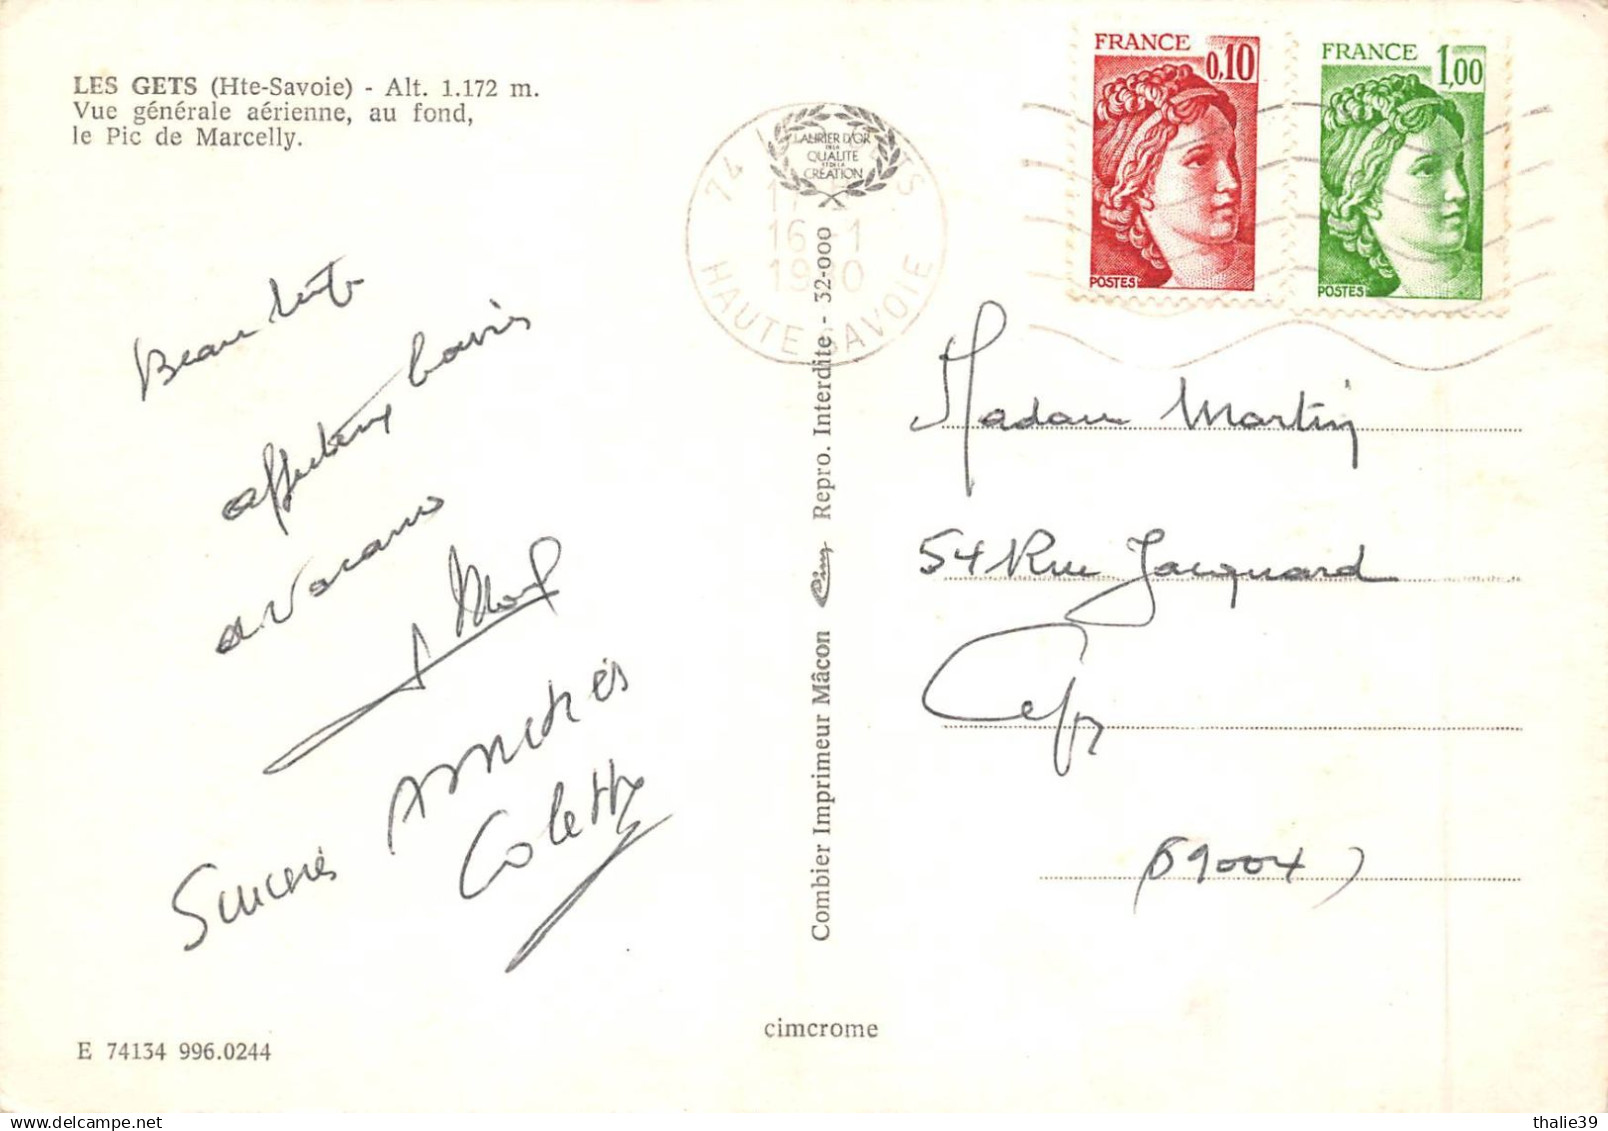 LES GETS (Hte-Savoie) - Alt. 1.172 m.
Vue générale aérienne, au fond,
le Pic de Marcelly.
LAURIER D'OR
DE LA
QUALITÉ
ET DE LA
CRÉATION
74 LES GETS
16-1
1980
HAUTE-SAVOIE
FRANCE 0,10
POSTES
FRANCE 1,00
POSTES
Beau
affectueux
Sincères Amitiés
Colette
Combier Imprimeur Mâcon Cim Repro. Interdite - 32-000
Madame Martin
54 Rue Jacquard
(69004)
cimcrome
E 74134 996.0244
thalie39